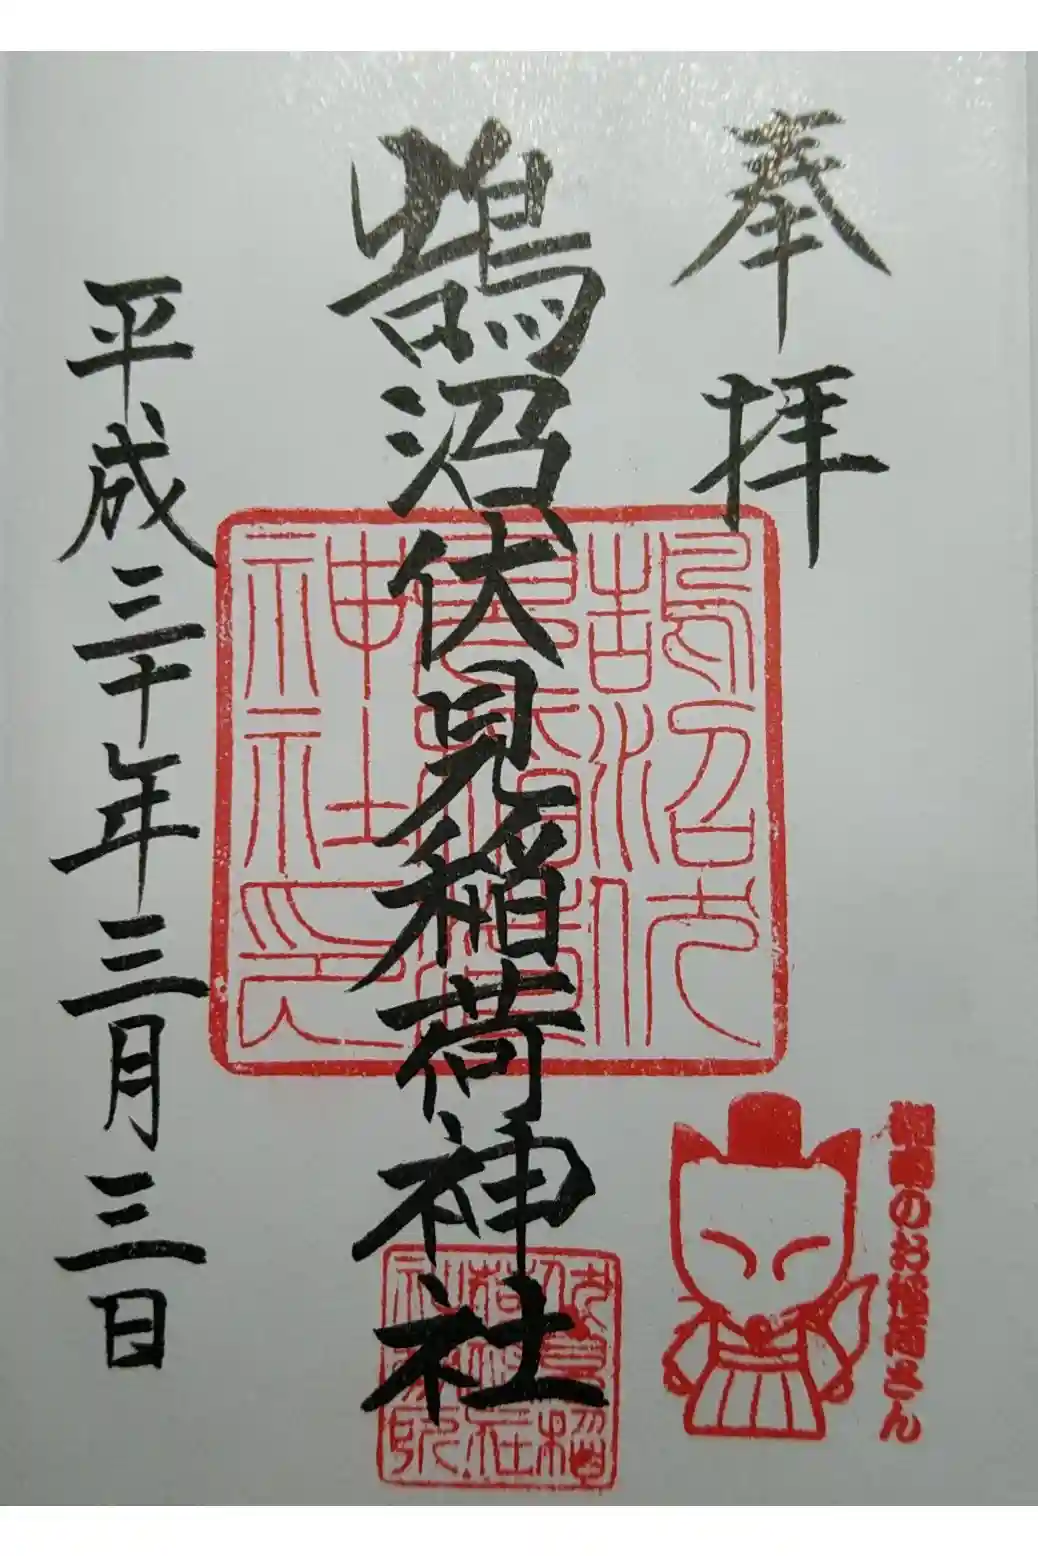 奉拝
鵠沼伏見稲荷神社
平成三十年三月三日
鵠沼伏見稲荷神社印
のお稲荷さん